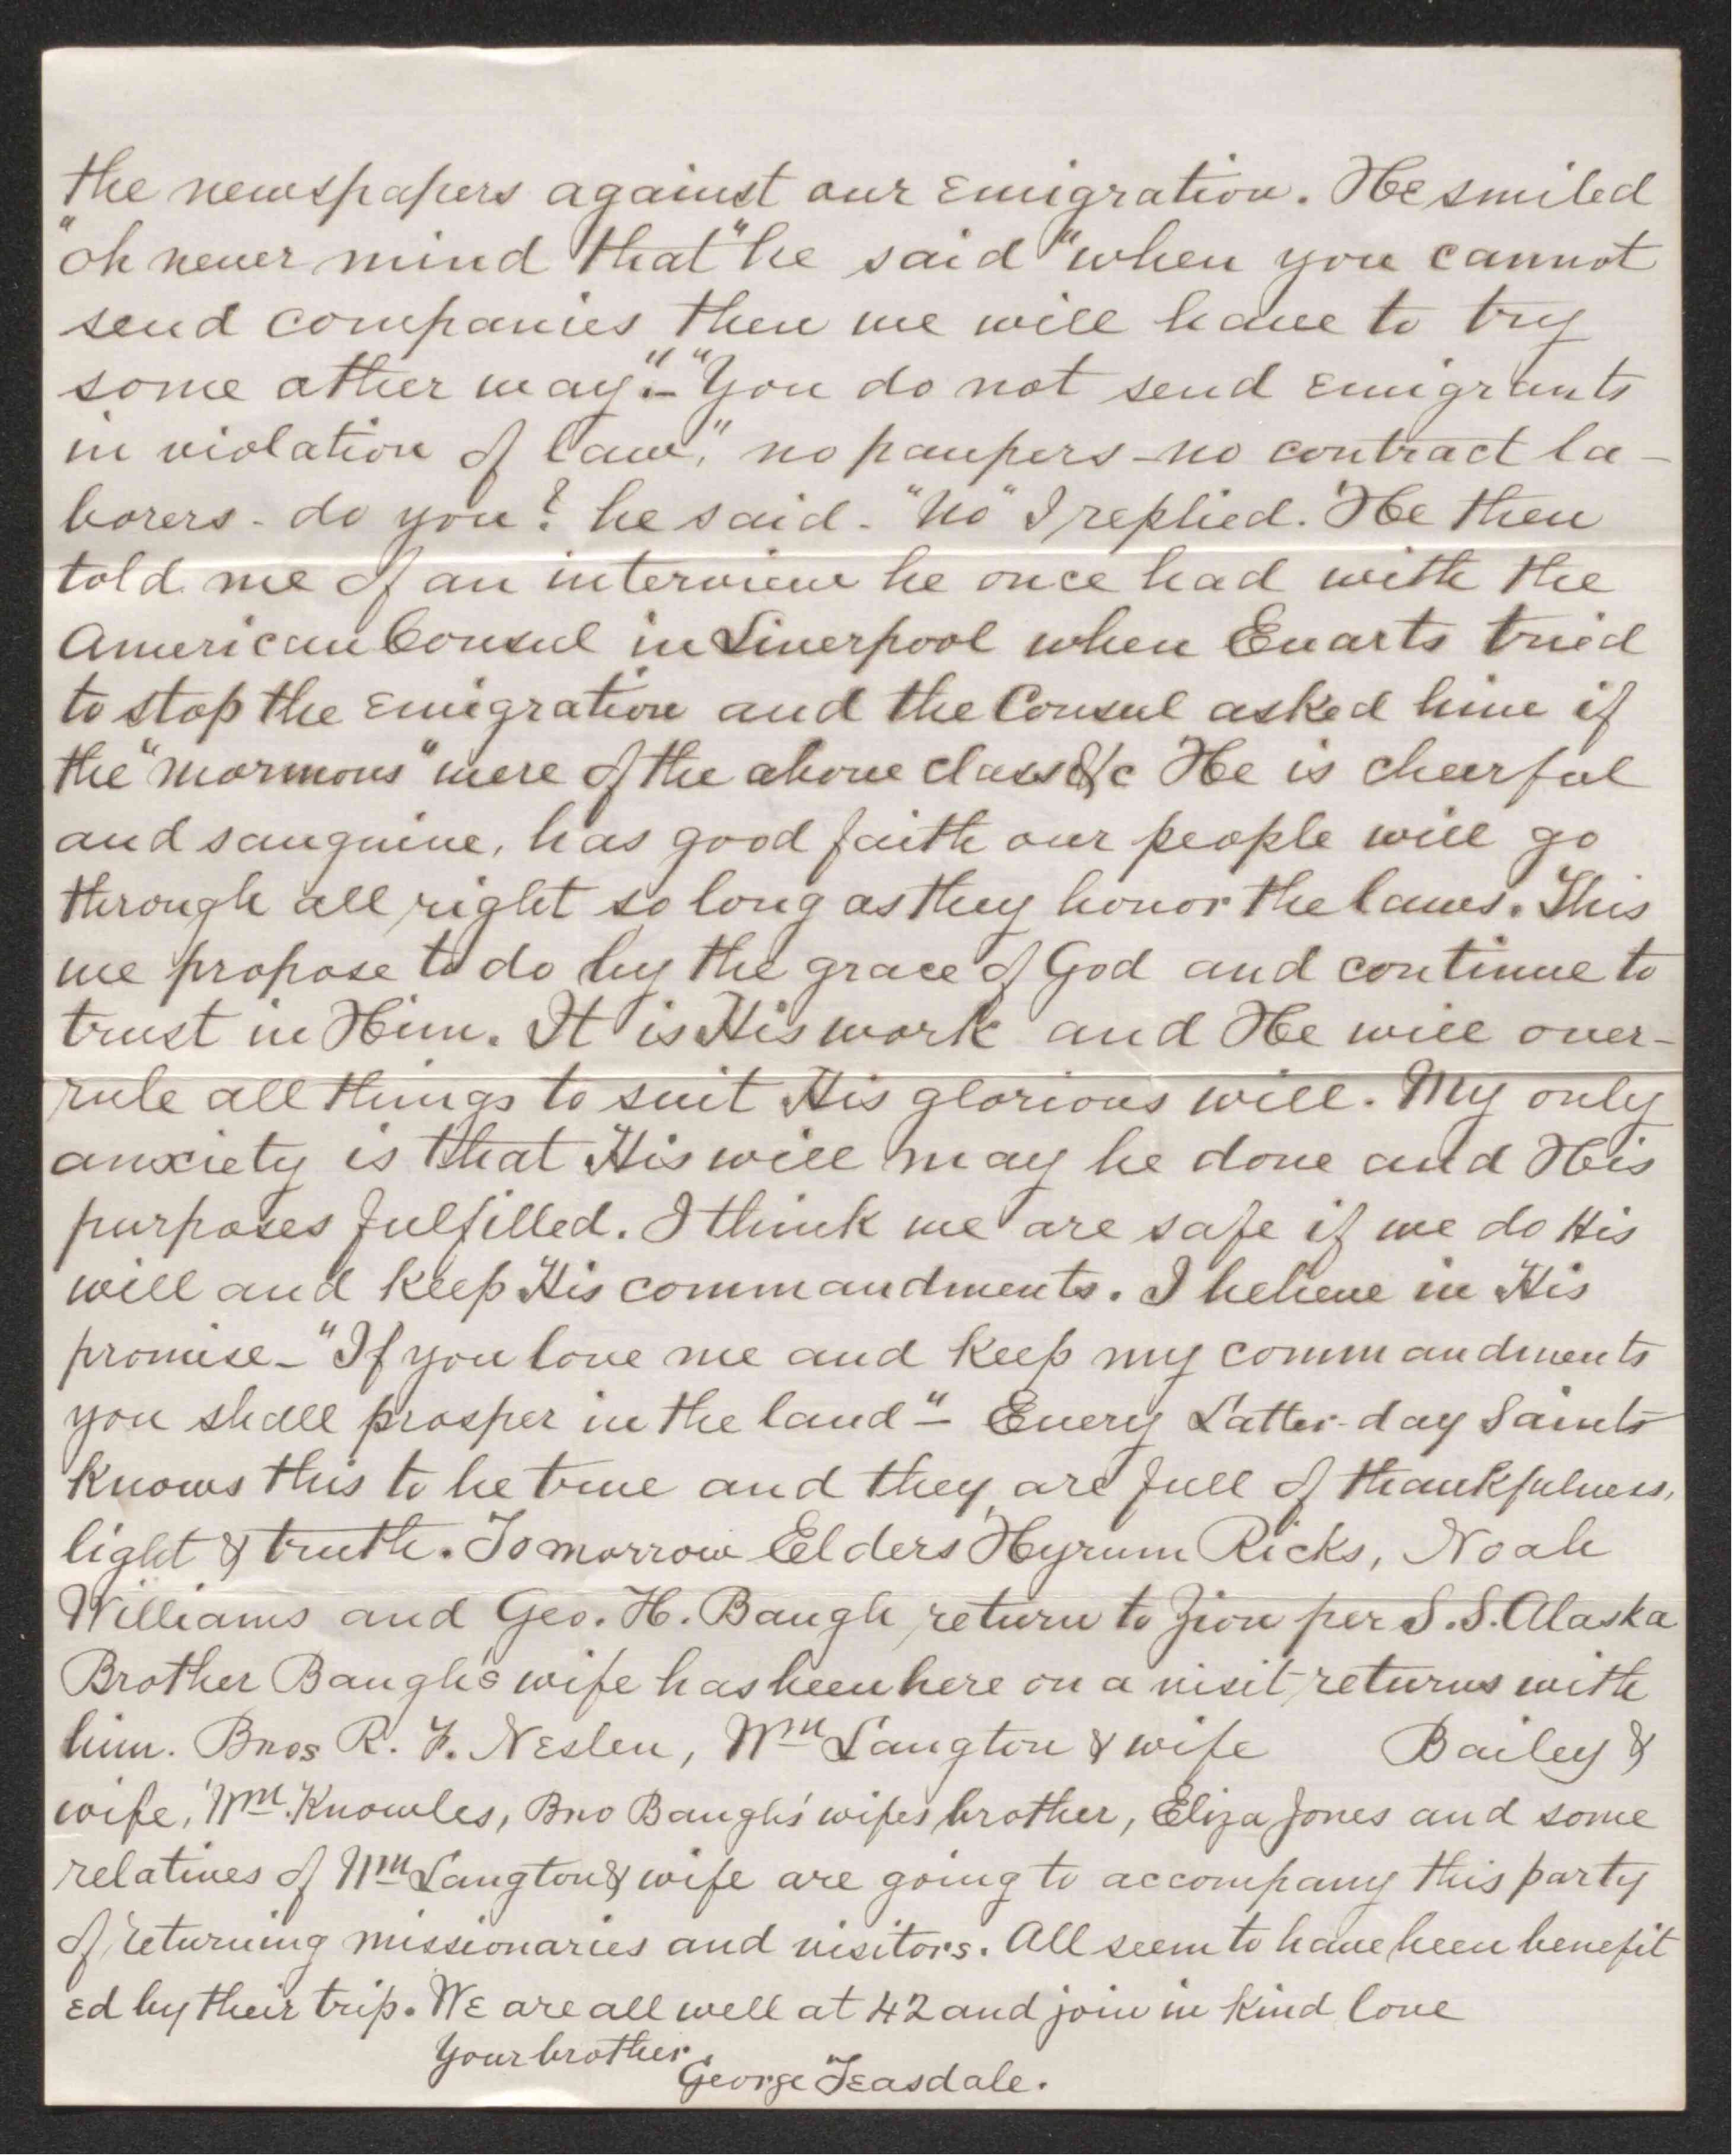 the newspapers against our emigration. He smiled
"oh never mind that" he said "when you cannot
send companies then we will have to try
some other way."-"You do not send emigrants
in violation of law," no paupers - no contract la-
borers - do you? he said - "No" I replied. He then
told me of an interview he once had with the
American Consul in Liverpool when Evarts tried
to stop the emigration and the Consul asked him if
the "mormons" were of the above class &c He is cheerful
and sanguine, has good faith our people will go
through all right so long as they honor the laws. This
we propose to do by the grace of God and continue to
trust in Him. It is His work and He will over-
rule all things to suit His glorious will. My only
anxiety is that His will may be done and His
purposes fulfilled. I think we are safe if we do His
will and keep His commandments. I believe in His
promise - "If you love me and keep my commandments
you shall prosper in the land" - Every Latter-day Saints
knows this to be true and they are full of thankfulness,
light & truth. Tomorrow Elders Hyrum Ricks, Noah
Williams and Geo. H. Baugh return to Zion per S.S. Alaska
Brother Baugh's wife has been here on a visit returns with
him. Bros R. F. Neslen, Wm Langton & wife Bailey &
wife, Wm. Knowles, Bro Baugh's wifes brother, Eliza Jones and some
relatives of Wm Langton & wife are going to accompany this party
of returning missionaries and visitors. All seem to have been benefit
ed by their trip. We are all well at 42 and join in kind love
Your brother,
George Teasdale.